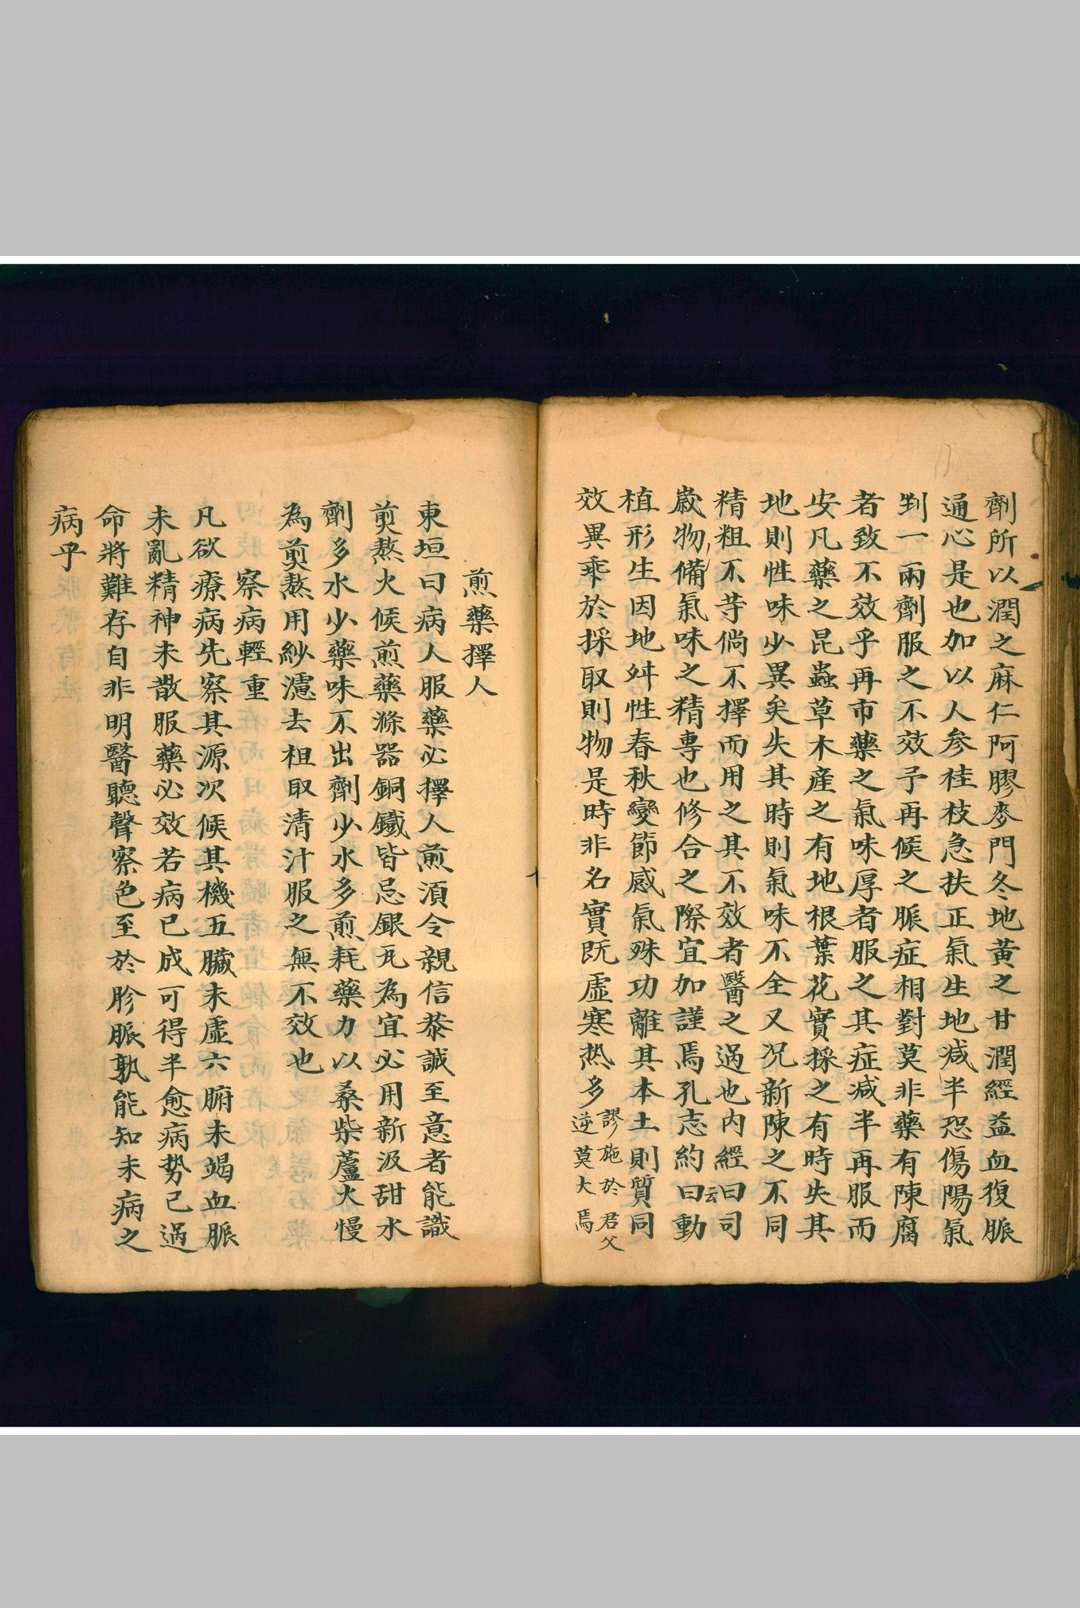 劑所以潤之麻仁阿膠麥門冬地黃之甘潤經益血復脈
通心是也加以人參桂枝急扶正氣生地減半恐傷陽氣
剉一兩劑服之不效予再候之脈症相對莫非藥有陳腐
者致不效乎再市藥之氣味厚者服之其症減半再服而
安凡藥之昆蟲草木產之有地根葉花實採之有時失其
地則性味少異矣失其時則氣味不全又況新陳之不同
精粗不等倘不擇而用之其不效者醫之過也內經云曰司
歲物備氣味之精專也修合之際宜加謹焉孔志約曰動
植形生因地舛性春秋變節感氣殊功離其本土則質同
效異乖於採取則物是時非名實既虛寒热多謬施於君父
逆莫大焉
煎藥擇人
東垣曰病人服藥必擇人煎須令親信恭誠至意者能識
煎熬火候煎藥滌器銅鐵皆忌銀瓦為宜必用新汲甜水
劑多水少藥味不出劑少水多煎耗藥力以桑柴蘆火慢
為煎熬用紗濾去柤取清汁服之無不效也
察病輕重
凡欲療病先察其源次候其機五臟未虛六腑未竭血脈
未亂精神未散服藥必效若病已成可得半愈病势已過
命將難存自非明醫聽聲察色至於胗脈孰能知未病之
病乎